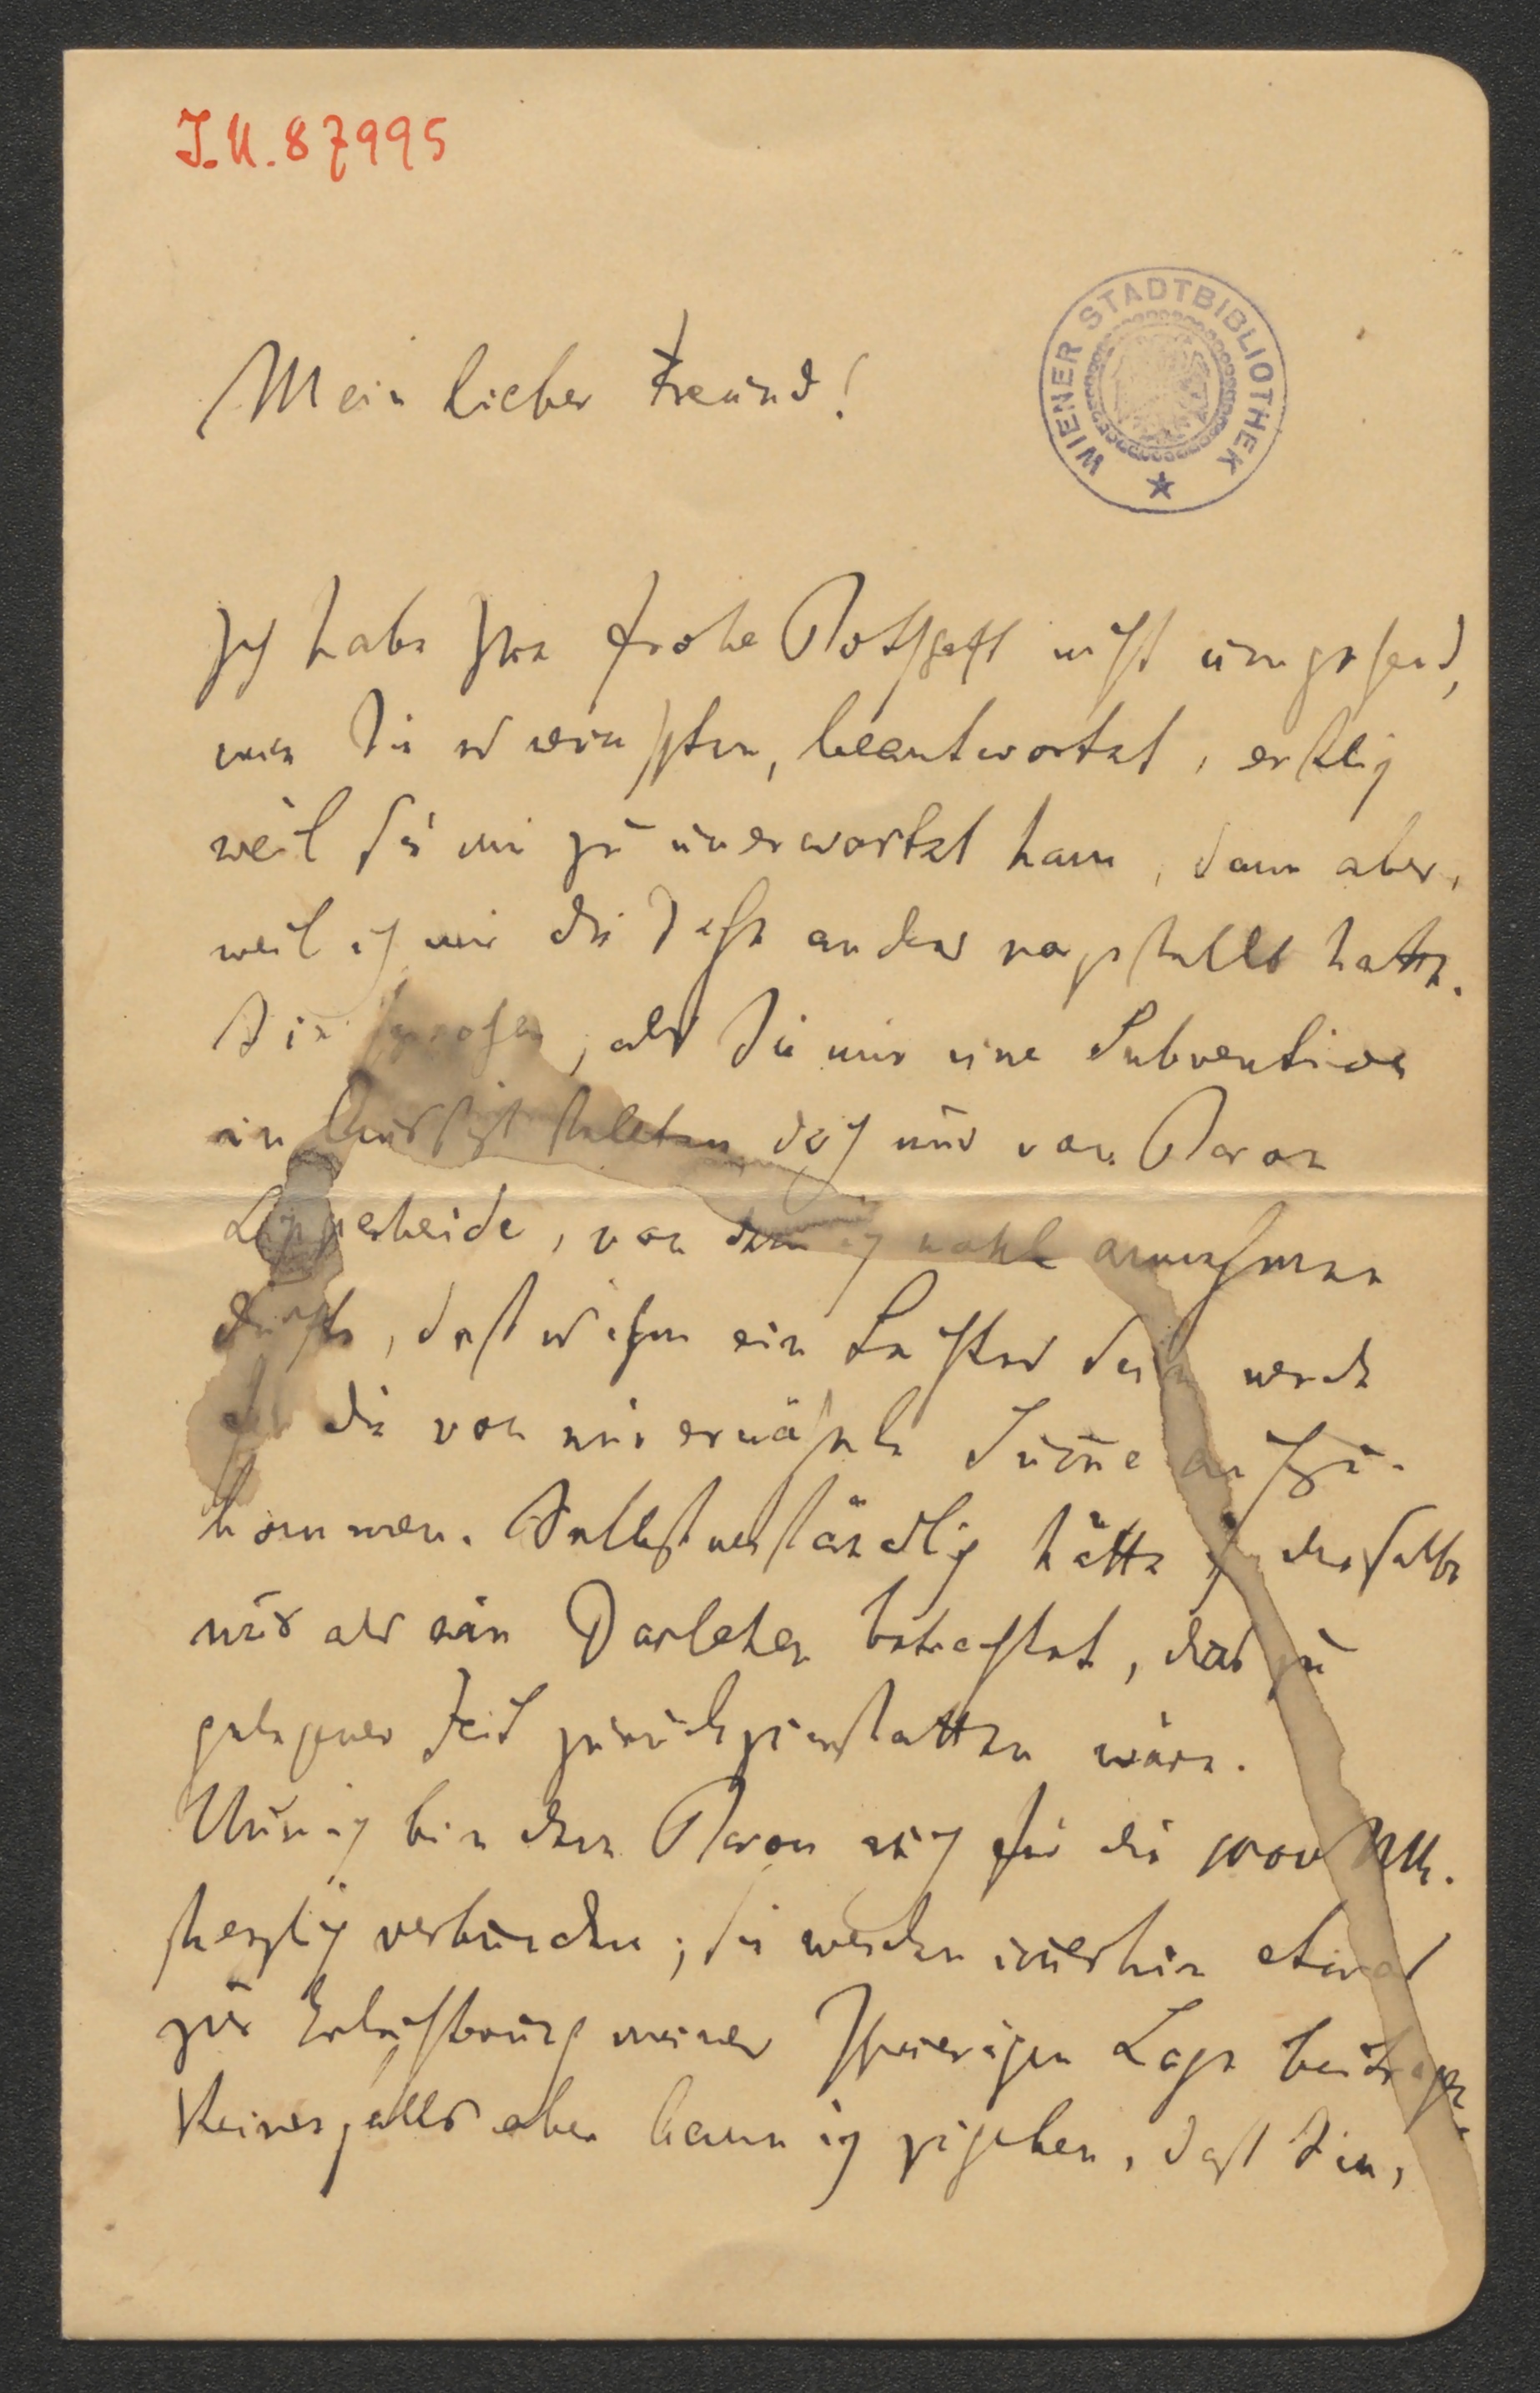 I.N. 87995
WIENER STADTBIBLIOTHEK
Mein lieber Freund!
Ich habe Ihre frohe Botschaft nicht umgehend,
wie Sie es wünschten, beantwortet, erstlich
weil sie mir zu unerwartet kam, dann aber,
weil ich mir die Sache anders vorgestellt hatte.
Sie sprachen, als Sie mir eine Subvention
in Aussicht stellten doch nur von Baron
Lipperheide, von dem ich wohl annehmen
durfte, dass es ihm ein Leichtes sein werde
für die von mir erwähnte Summe aufzu-
kommen. Selbstverständlich hätte ich dieselbe
nur als ein Darlehen betrachtet, das zu
gelegener Zeit zurückzuerstatten wäre.
Nun ich bin dem Baron auch für die 1000 Mk.
herzlich verbunden; sie werden immerhin etwas
zur Erleichterung meiner schwierigen Lage beitragen.
Keinesfalls aber kann ich zugeben, dass Sie,